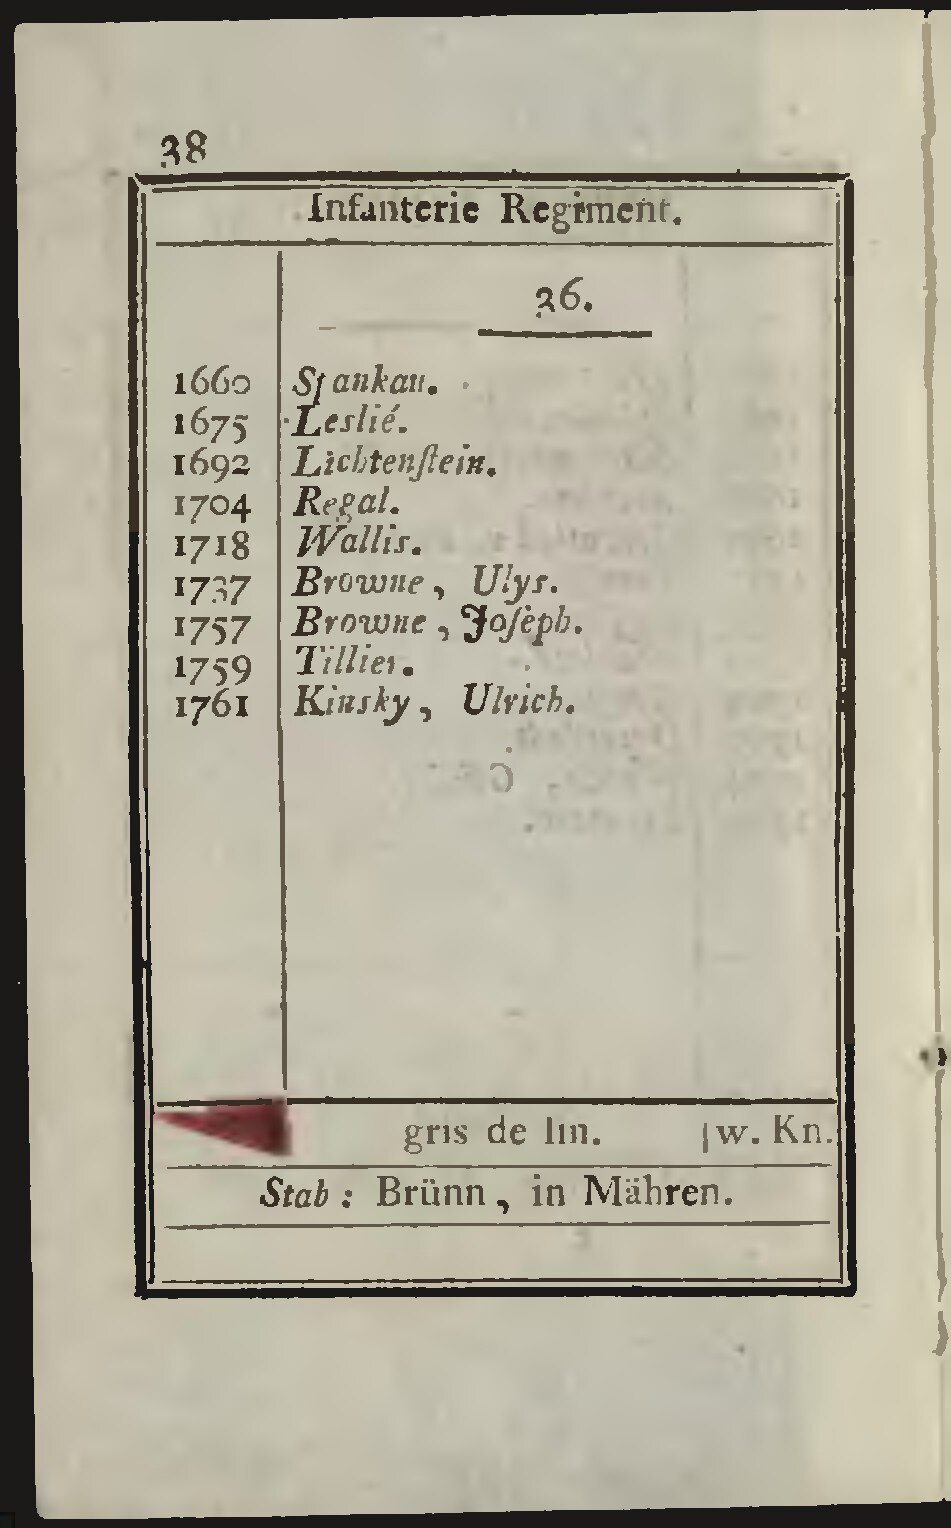 38
Infanterie Regiment.
36.
1660 Stankau.
1675 Leslié.
1692 Lichtenſtein.
1704 Regal.
1718 Wallis.
1737 Browne, Ulys.
1757 Browne, Joſeph.
1759 Tillier.
1761 Kinsky, Ulrich.
gris de lin. w. Kn.
Stab: Brünn, in Mähren.